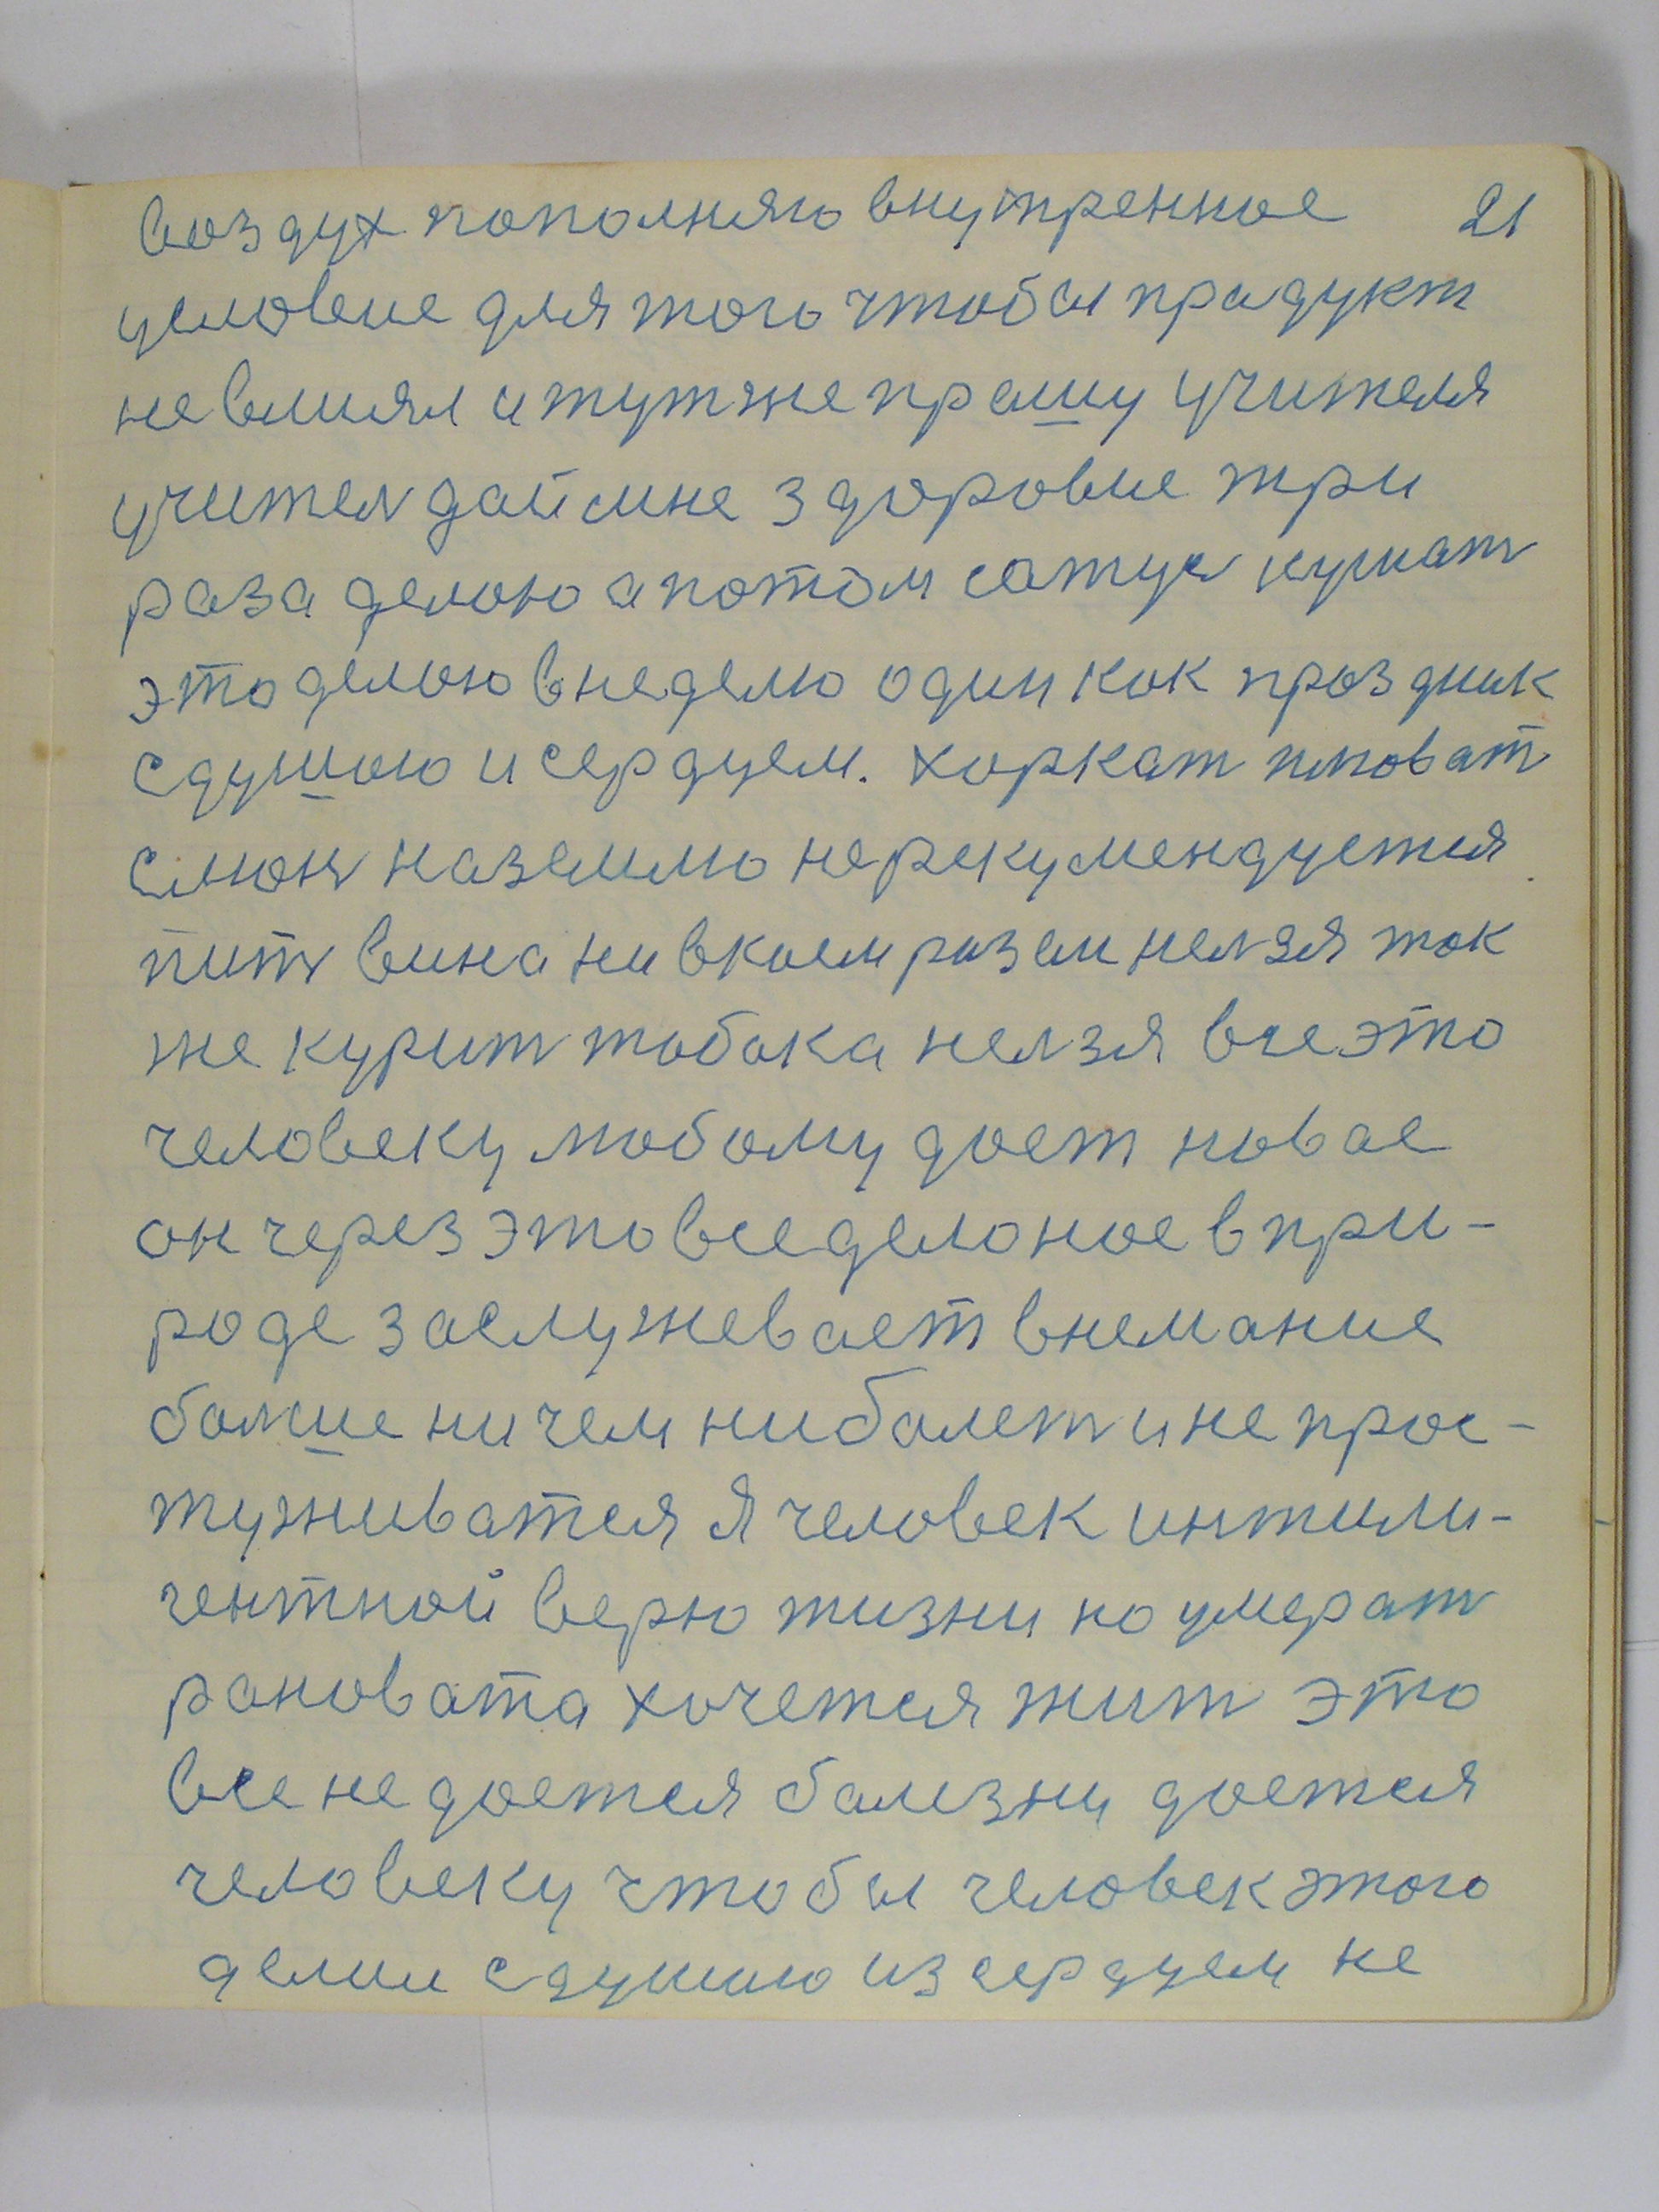 воздух пополняю внутренное 21
условие для того чтобы прадукт
не влиял и тут же прашу учителя
учитель дай мне здоровие три
раза делаю а потом сатус кушат
это делаю в неделю один как праздник
с душою и сердцем. харкат плюват
слюн на землю не рекумендуется
пить вина ни в коем разем нельзя так
же курить табака нельзя все это
человеку любому дает новае
он через это все деланое в при-
роде заслужевает внемание
больше ни чем ни балеть и не прос-
туживатся Я человек интили-
гентной верю жизни но умерать
рановата хочется жить это
все не дается балезни дается
человеку чтобы человек этого
делии с душою и з сердцем не